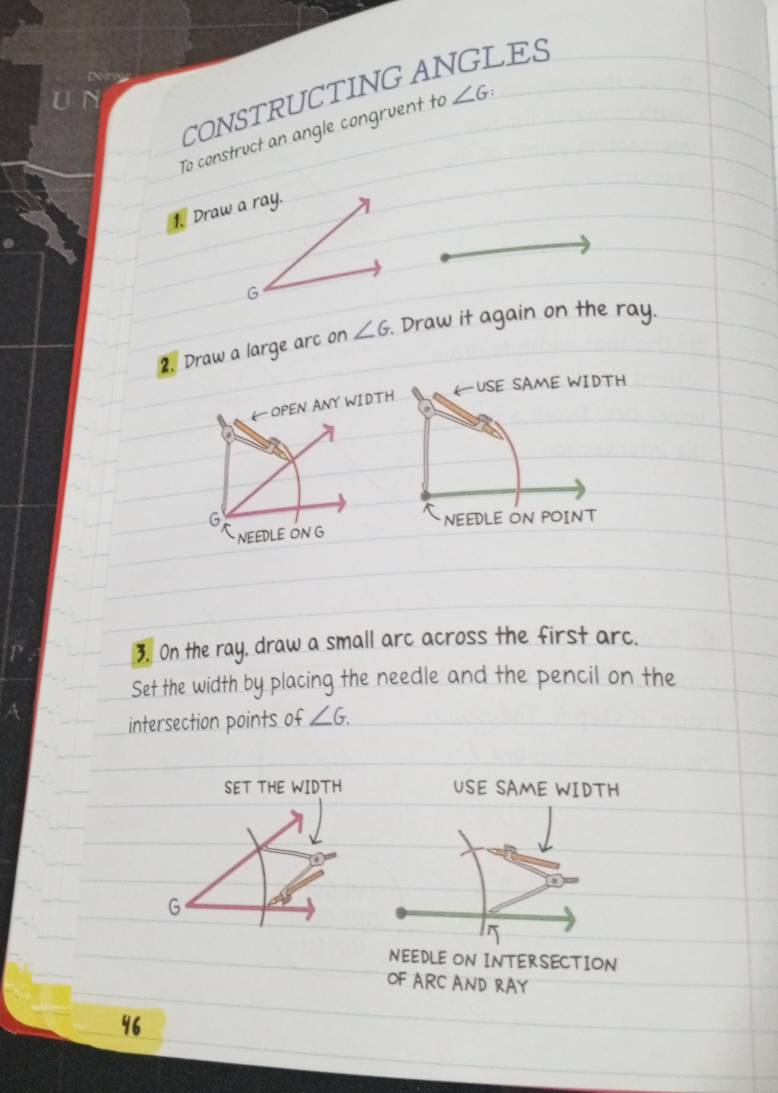 Denver
UN
CONSTRUCTING ANGLES
To construct an angle congruent to ∠G:
1. Draw a ray.
G
2. Draw a large arc on ∠G. Draw it again on the ray.
←OPEN ANY WIDTH
←USE SAME WIDTH
G
NEEDLE ON G
NEEDLE ON POINT
3. On the ray, draw a small arc across the first arc.
Set the width by placing the needle and the pencil on the
intersection points of ∠G.
SET THE WIDTH
USE SAME WIDTH
G
NEEDLE ON INTERSECTION
OF ARC AND RAY
46